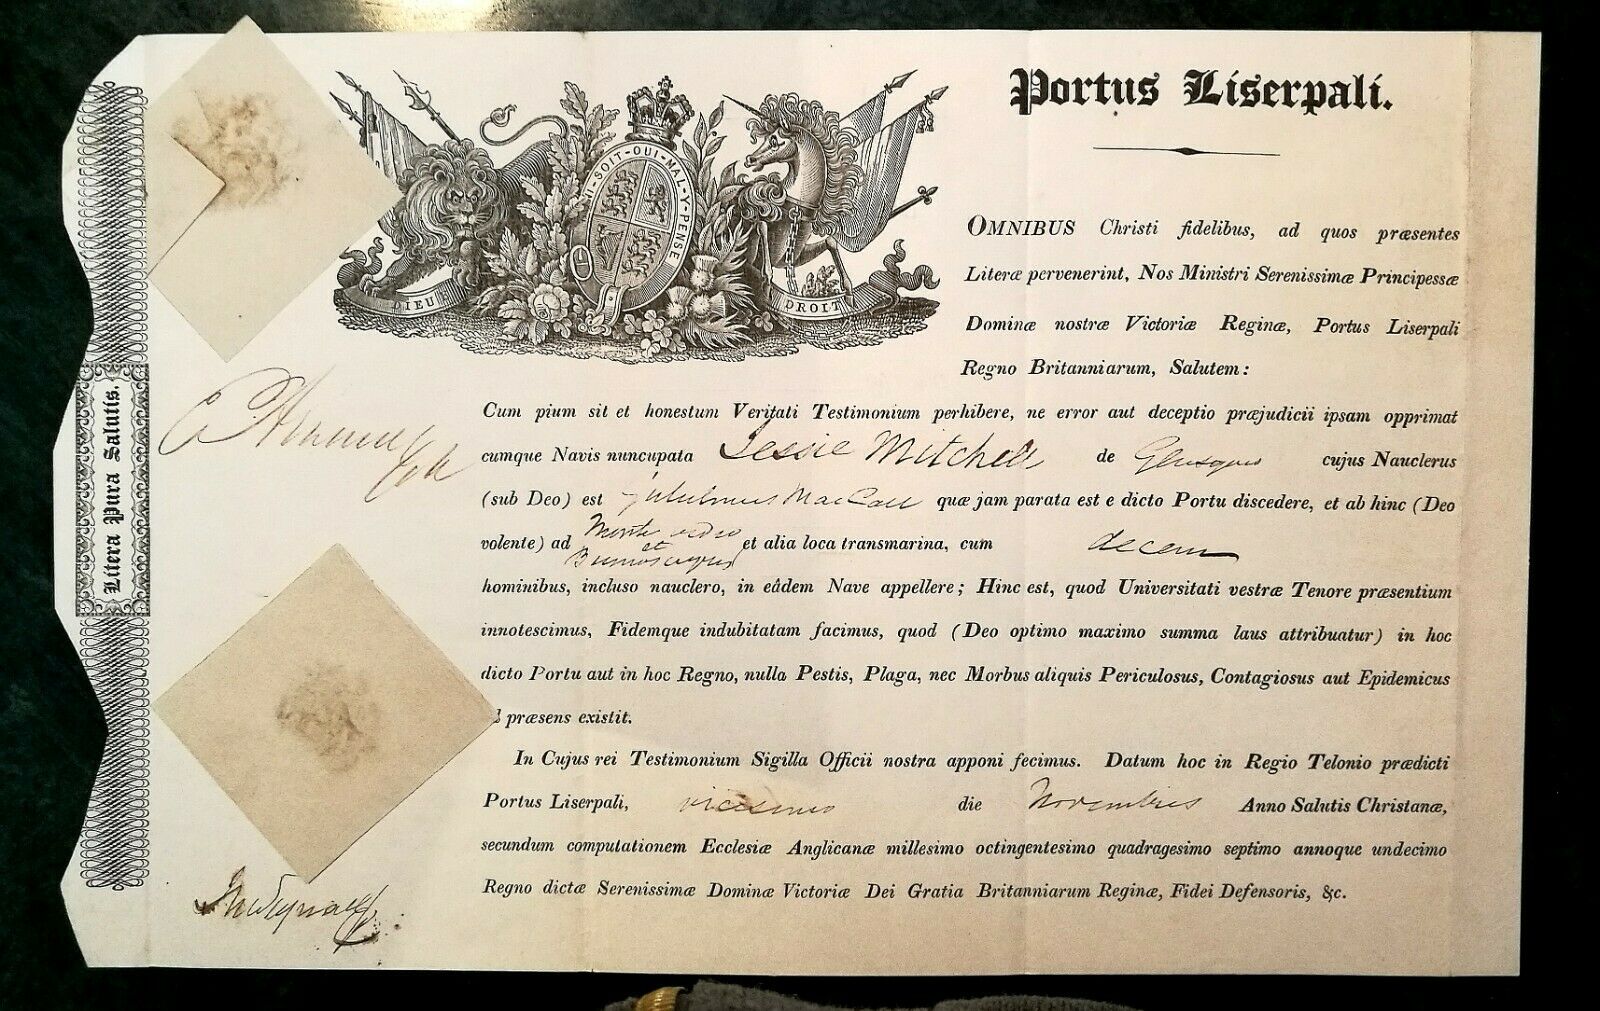 Portus Liserpali.
HONI·SOIT·QUI·MAL·Y·PENSE
DIEU DROIT
OMNIBUS Christi fidelibus, ad quos præsentes
Literæ pervenerint, Nos Ministri Serenissimæ Principessæ
Dominæ nostræ Victoriæ Reginæ, Portus Liserpali
Regno Britanniarum, Salutem:
Cum pium sit et honestum Veritati Testimonium perhibere, ne error aut deceptio præjudicii ipsam opprimat
cumque Navis nuncupata Jessie Mitchell de Glasgow cujus Nauclerus
(sub Deo) est MacCall quæ jam parata est e dicto Portu discedere, et ab hinc (Deo
volente) ad Monte video et Buenos ayres et alia loca transmarina, cum decem
hominibus, incluso nauclero, in eâdem Nave appellere; Hinc est, quod Universitati vestræ Tenore præsentium
innotescimus, Fidemque indubitatam facimus, quod (Deo optimo maximo summa laus attribuatur) in hoc
dicto Portu aut in hoc Regno, nulla Pestis, Plaga, nec Morbus aliquis Periculosus, Contagiosus aut Epidemicus
præsens existit.
In Cujus rei Testimonium Sigilla Officii nostra apponi fecimus. Datum hoc in Regio Telonio prædicti
Portus Liserpali, vicesimo die Novembris Anno Salutis Christanæ,
secundum computationem Ecclesiæ Anglicanæ millesimo octingentesimo quadragesimo septimo annoque undecimo
Regno dictæ Serenissimæ Dominæ Victoriæ Dei Gratia Britanniarum Reginæ, Fidei Defensoris, &c.
Litera Pura Salutis.